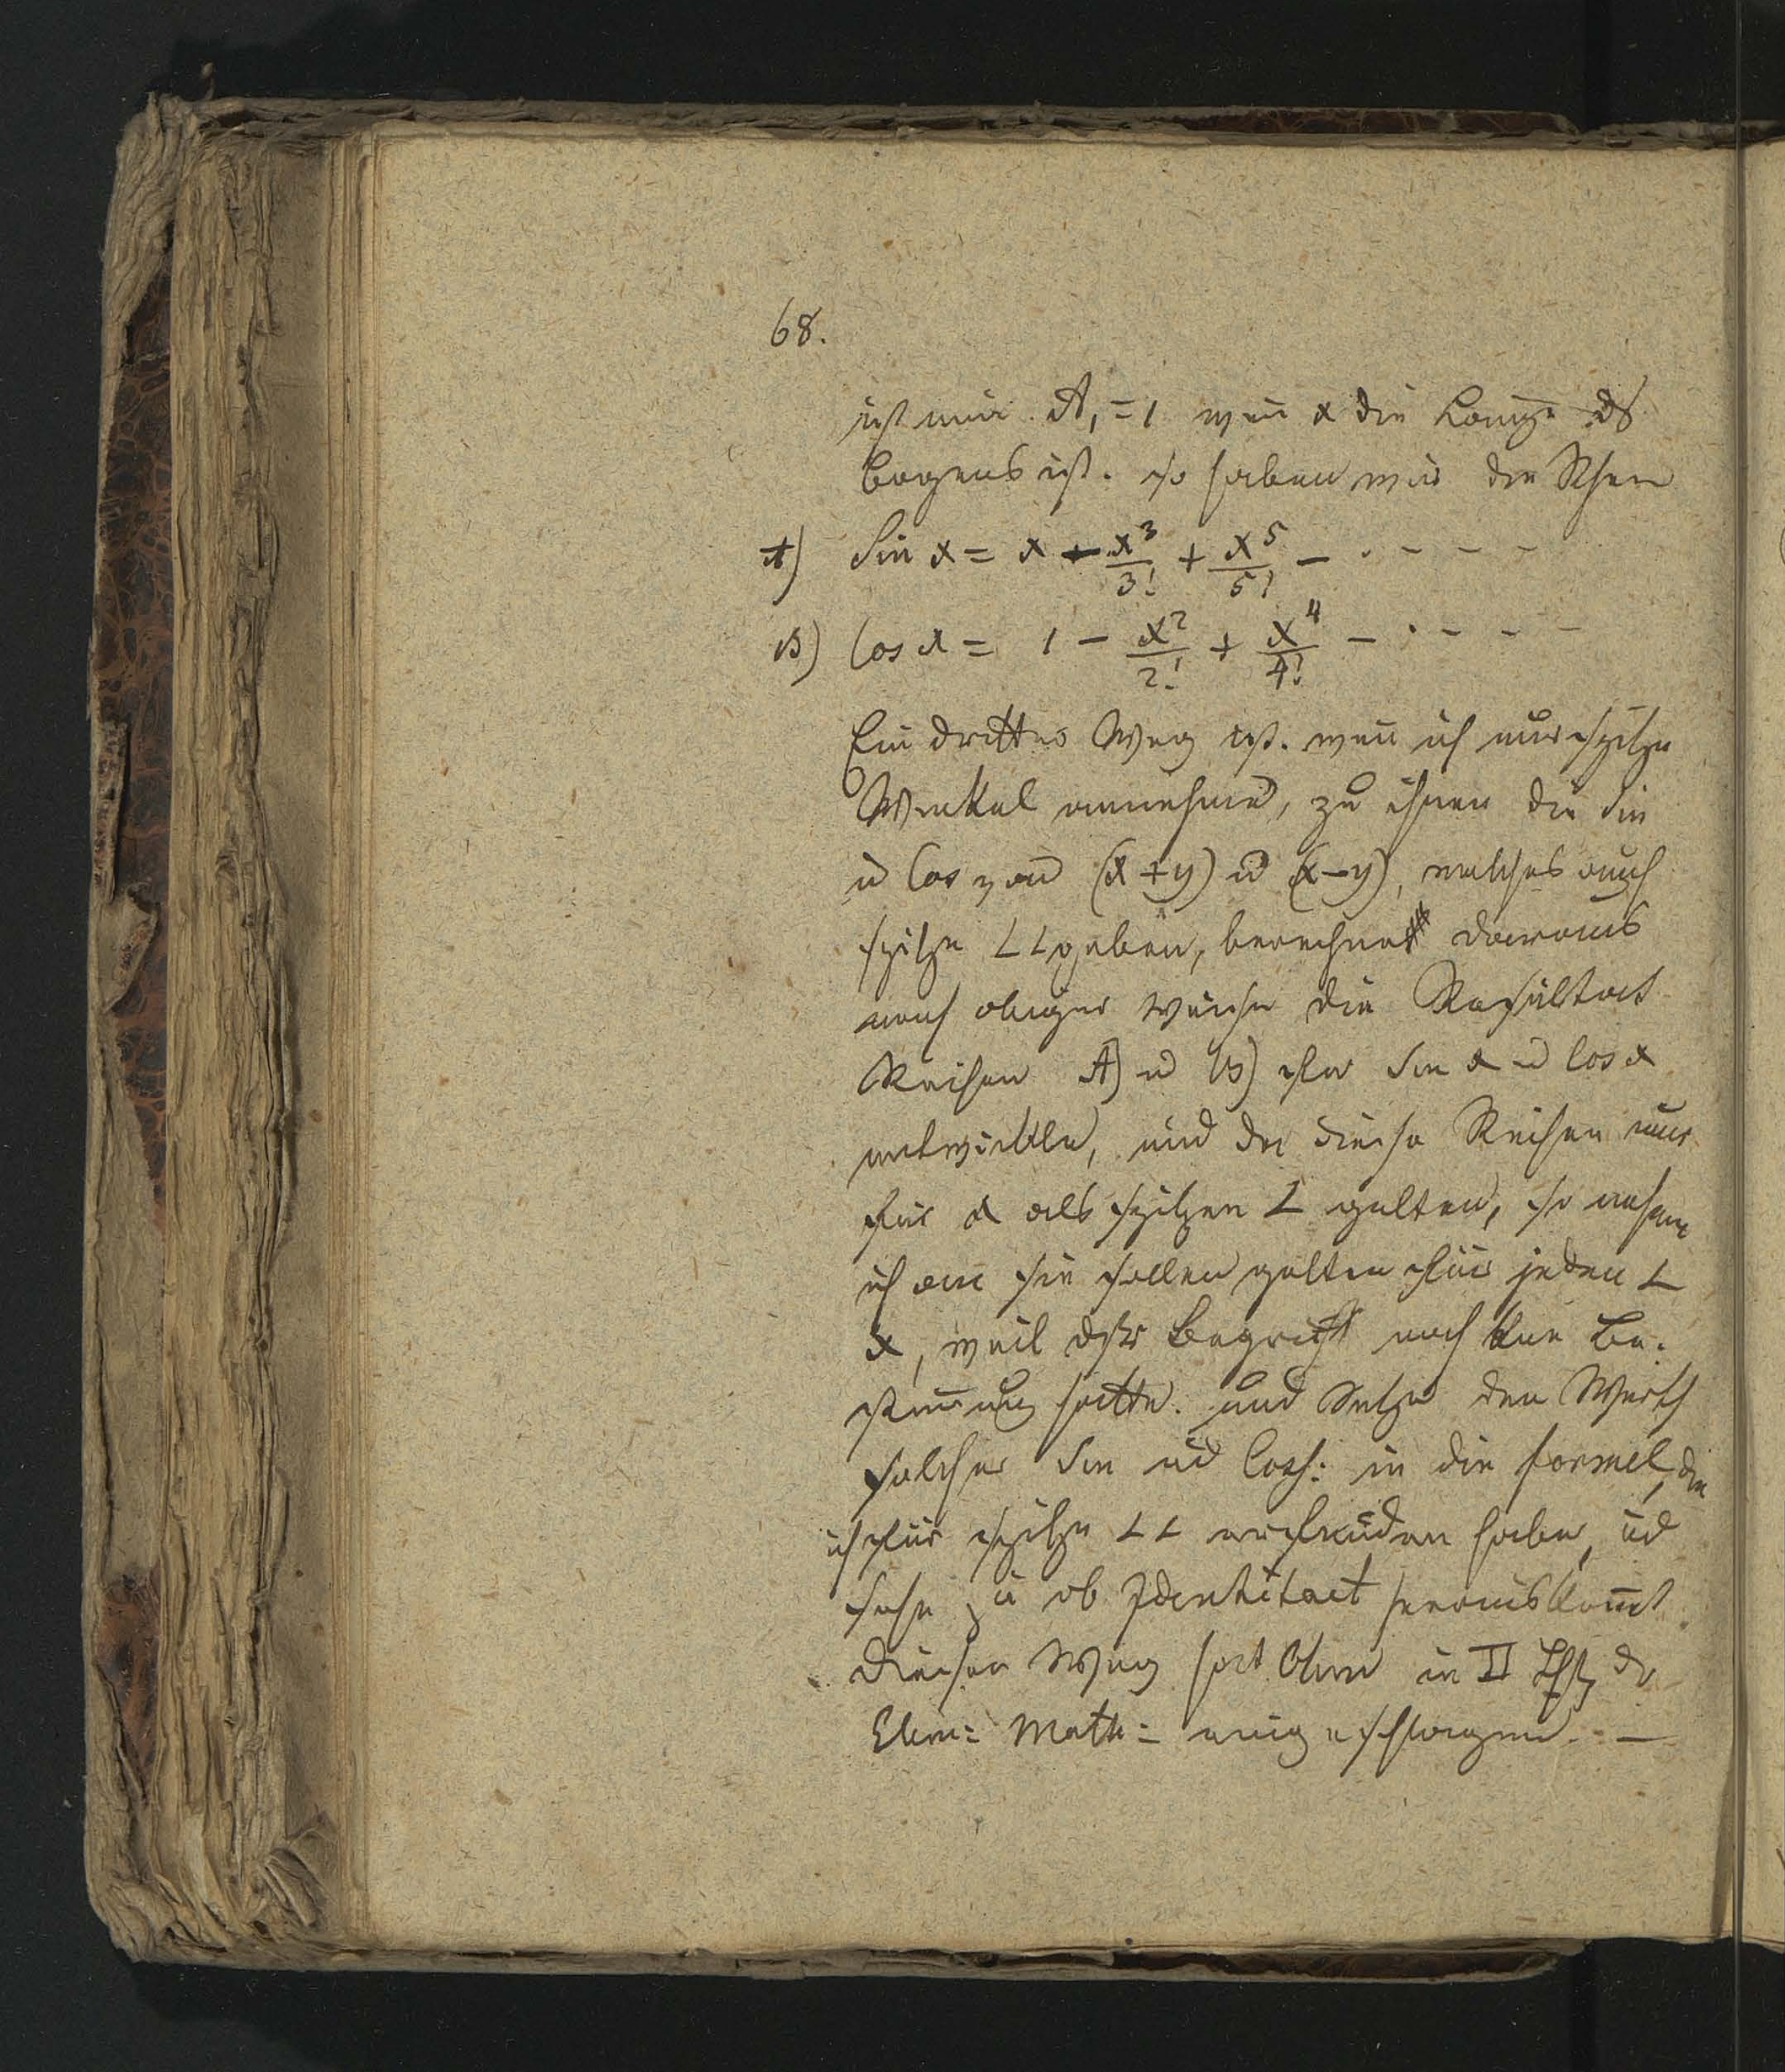 68.
ist nur A₁ = 1 weñ x die Länge ds
Bogens ist. so haben wir die Rhen
A) Sin x = x - x³/3! + x⁵/5! - . - - - -
B) Cos x = 1 - x²/2! + x⁴/4! - . - - -
Ein dritter Weg ist. weñ ich nur spitze
Winkel annehme, zu ihnen die Sin
u Cos von (x+y) u (x-y), welches auch
spitze ∠∠ geben, berechnet daraus
nach obiger Weise die Resultat
Reihen A) u B) für Sin x u Cos x
entwickle, und da diese Reihen nur
für x als spitzen ∠ gelten, so nehme
ich an sie sollen gelten für jeden ∠
x, weil dsr Begriff noch kne Be-
stim̃ung hatte. und Setze den Werth
solcher Sin ud Cos: in die formel, die
ich für spitze ∠∠ erfunden habe, ud
sehe zu ob Identitaet herauskom̃t
Diesen Weg hat Ohm in II der
Elem: Math: eingeschlagen. —